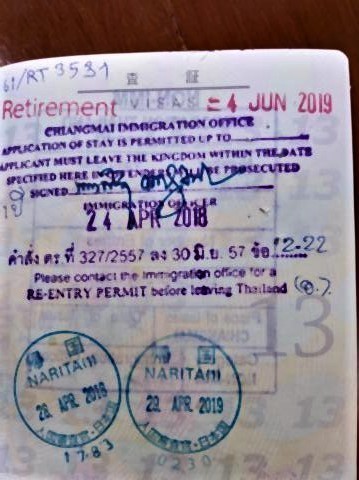 61/RT 3531
査 証
Retirement VISAS - 4 JUN 2019
CHIANGMAI IMMIGRATION OFFICE
APPLICATION OF STAY IS PERMITTED UP TO
APPLICANT MUST LEAVE THE KINGDOM WITHIN THE DATE
SPECIFIED HERE IN. OFFENDER WILL BE PROSECUTED
SIGNED
IMMIGRATION OFFICER
24 APR 2018
คำสั่ง ตร.ที่ 327/2557 ลง 30 มิ.ย. 57 ข้อ 2.22
Please contact the Immigration office for a
RE-ENTRY PERMIT before leaving Thailand
13
帰 国
NARITA(1)
28. APR. 2018
入国審査官・日本国
1783
帰 国
NARITA(1)
29. APR. 2019
入国審査官・日本国
0230